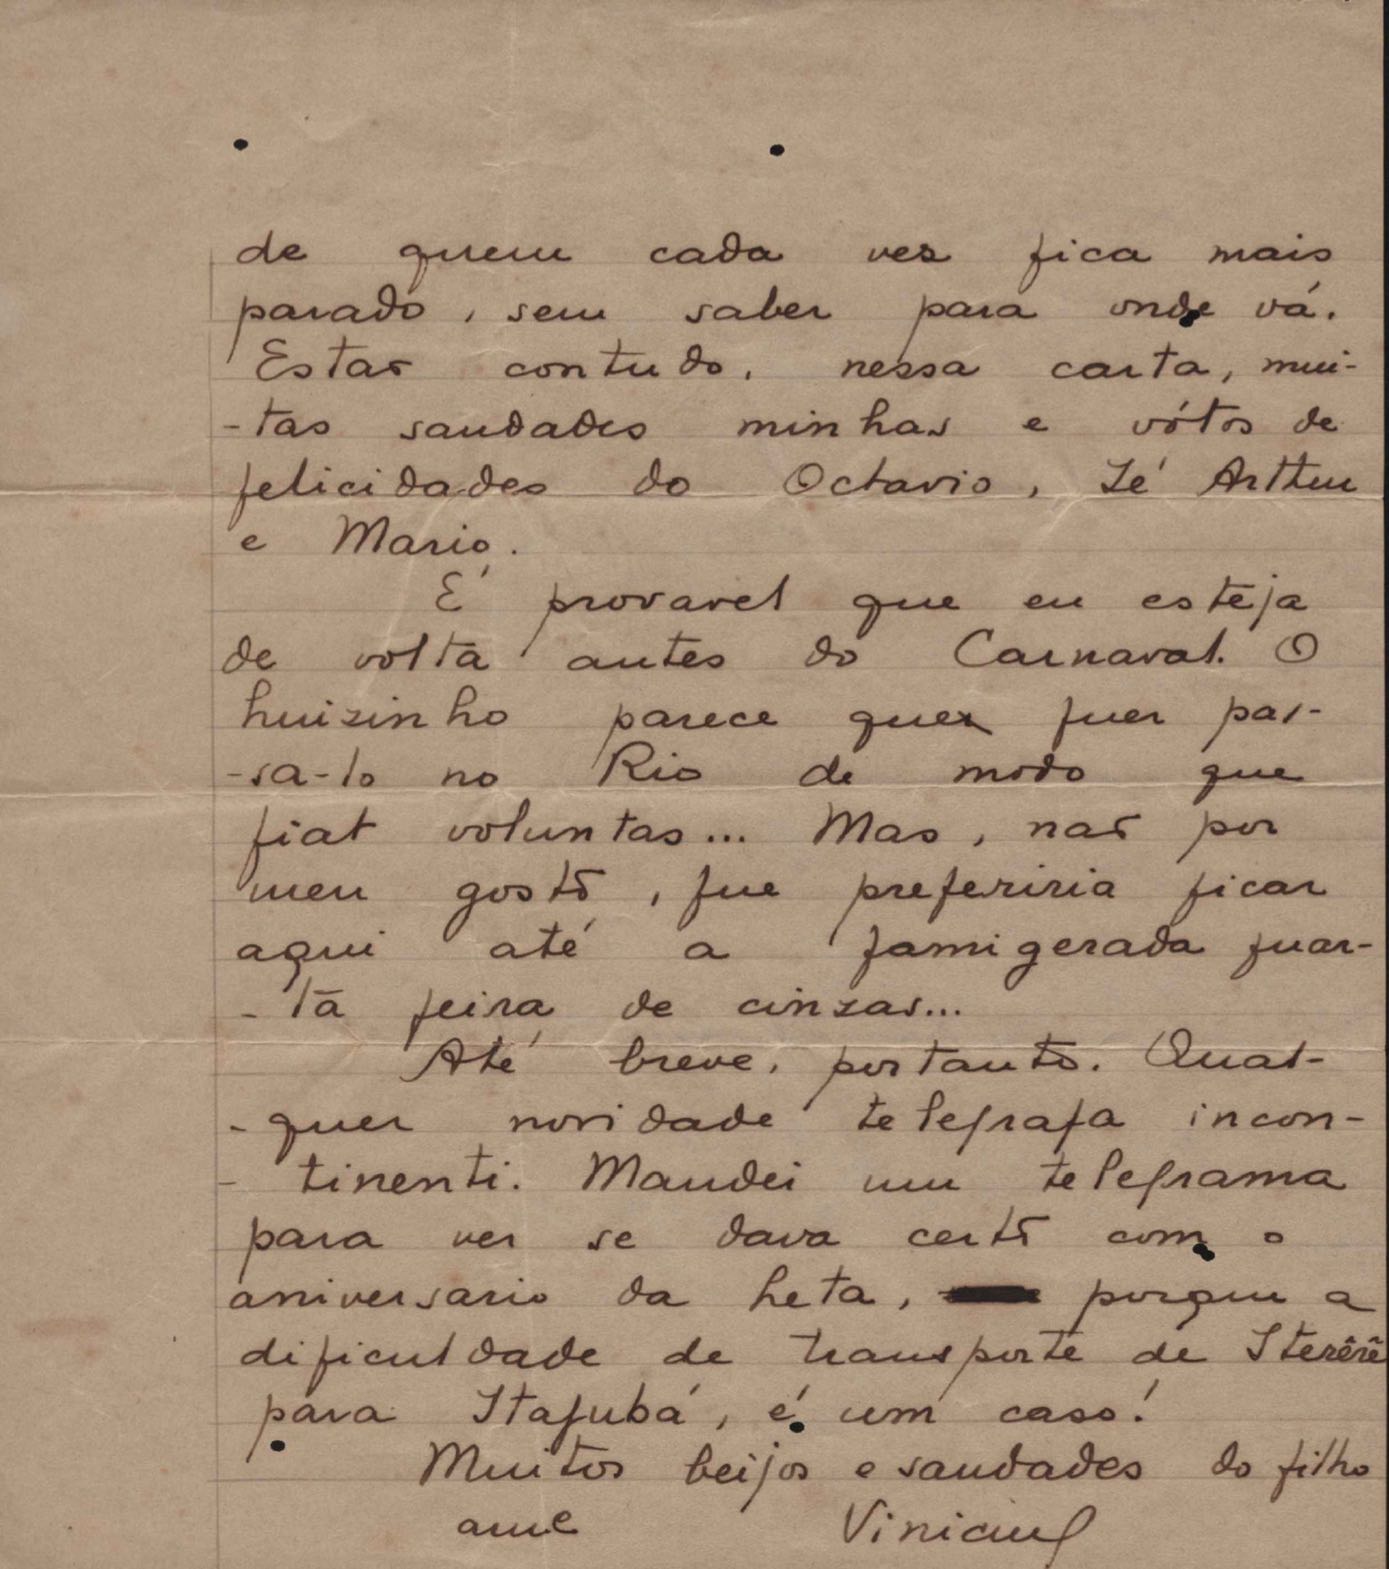 de quem cada vez fica mais
parado, sem saber para onde vá.
Estão contudo, nessa carta, mui-
-tas saudades minhas e vótos de
felicidades do Octavio, Zé Arthur
e Mario.
É provavel que eu esteja
de volta antes do Carnaval. O
Luizinho parece quer quer pas-
-sa-lo no Rio de modo que
fiat voluntas... Mas, não por
meu gosto, que preferiria ficar
aqui até a famigerada quar-
-ta feira de cinzas...
Até breve, portanto. Qual-
-quer novidade telegrafa incon-
-tinenti. Mandei um telegrama
para ver se dava certo com o
aniversario da Leta, porque a
dificuldade de transporte de Itêrêrê
para Itajubá, é um caso!
Muitos beijos e saudades do filho
amº Vinicius